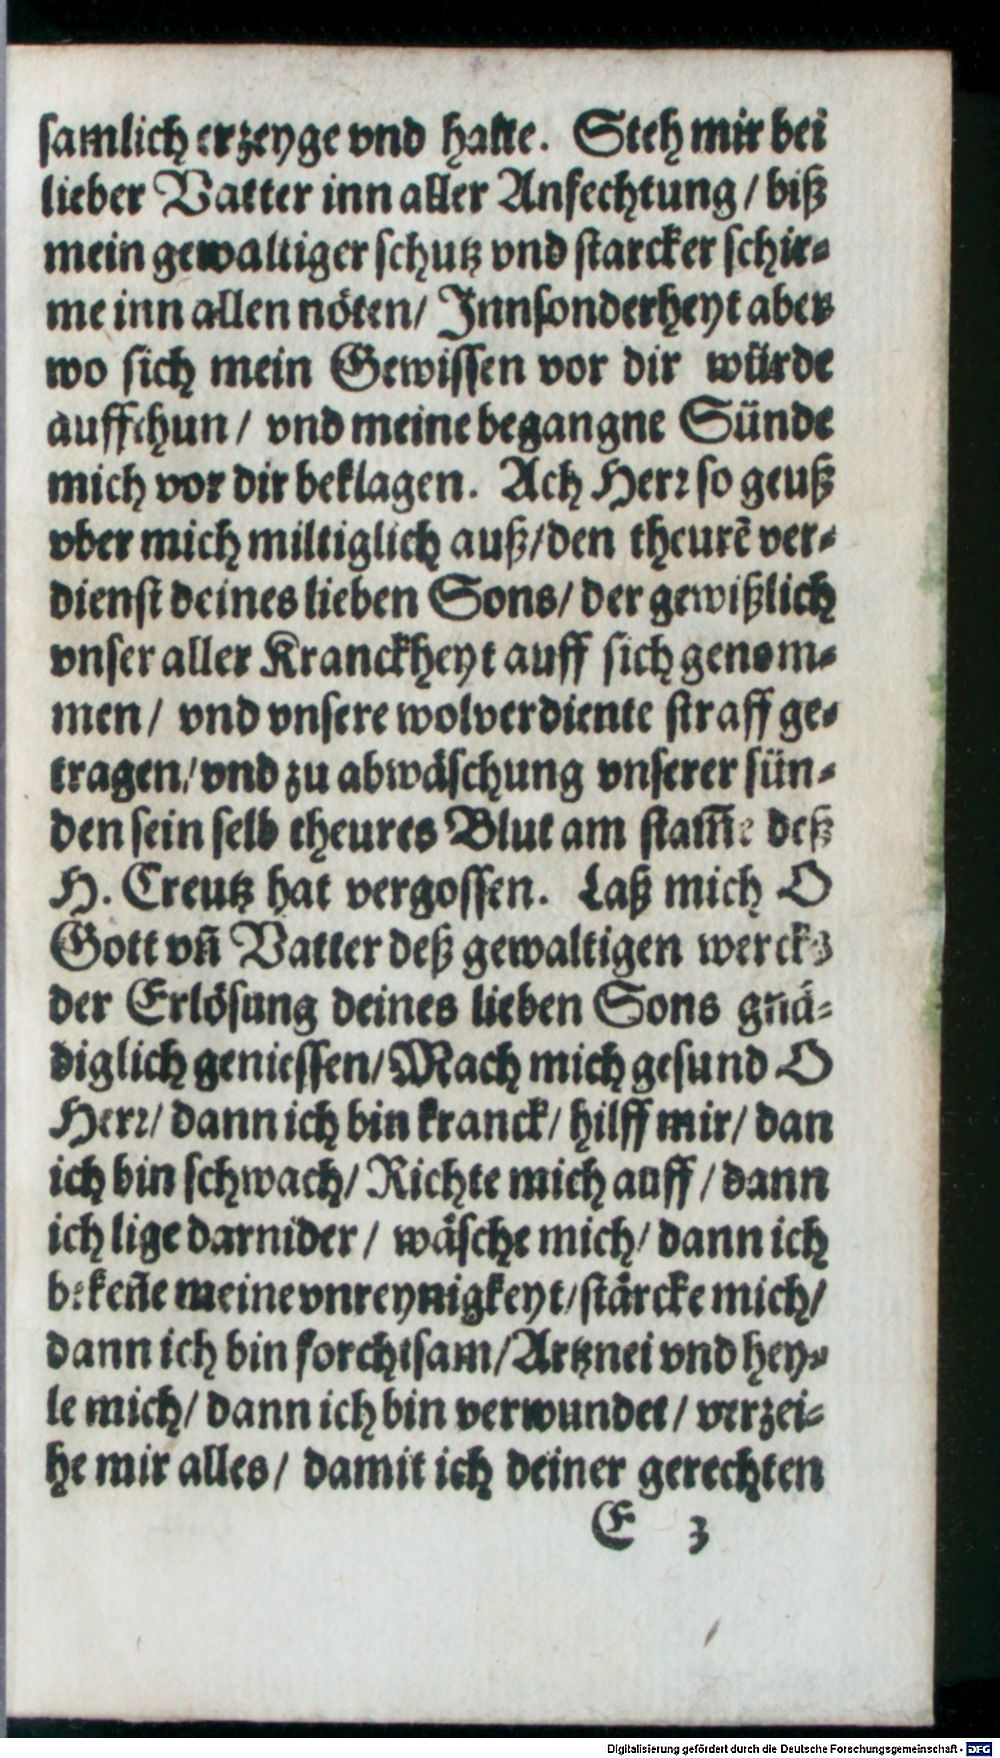 samlich erzeyge vnd halte. Steh mir bei
lieber Vatter inn aller Anfechtung / biß
mein gewaltiger schutz vnd starcker schir⸗
me inn allen nöten / Jnnsonderheyt aber
wo sich mein Gewissen vor dir würde
auffthun / vnd meine begangne Sünde
mich vor dir beklagen. Ach Herr so geuß
vber mich miltiglich auß / den theurē ver⸗
dienst deines lieben Sons / der gewißlich
vnser aller Kranckheyt auff sich genom⸗
men / vnd vnsere wolverdiente straff ge⸗
tragen / vnd zu abwäschung vnserer sün⸗
den sein selb theures Blut am stam̄e deß
H. Creutz hat vergossen. Laß mich O
Gott vn̄ Vatter deß gewaltigen wercks
der Erlösung deines lieben Sons gnä⸗
diglich geniessen / Mach mich gesund O
Herr / dann ich bin kranck / hilff mir / dan
ich bin schwach / Richte mich auff / dann
ich lige darnider / wäsche mich / dann ich
beken̄e meine vnreynigkeyt / stärcke mich /
dann ich bin forchtsam / Artznei vnd hey⸗
le mich / dann ich bin verwundet / verzei⸗
he mir alles / damit ich deiner gerechten
E 3
Digitalisierung gefördert durch die Deutsche Forschungsgemeinschaft - DFG